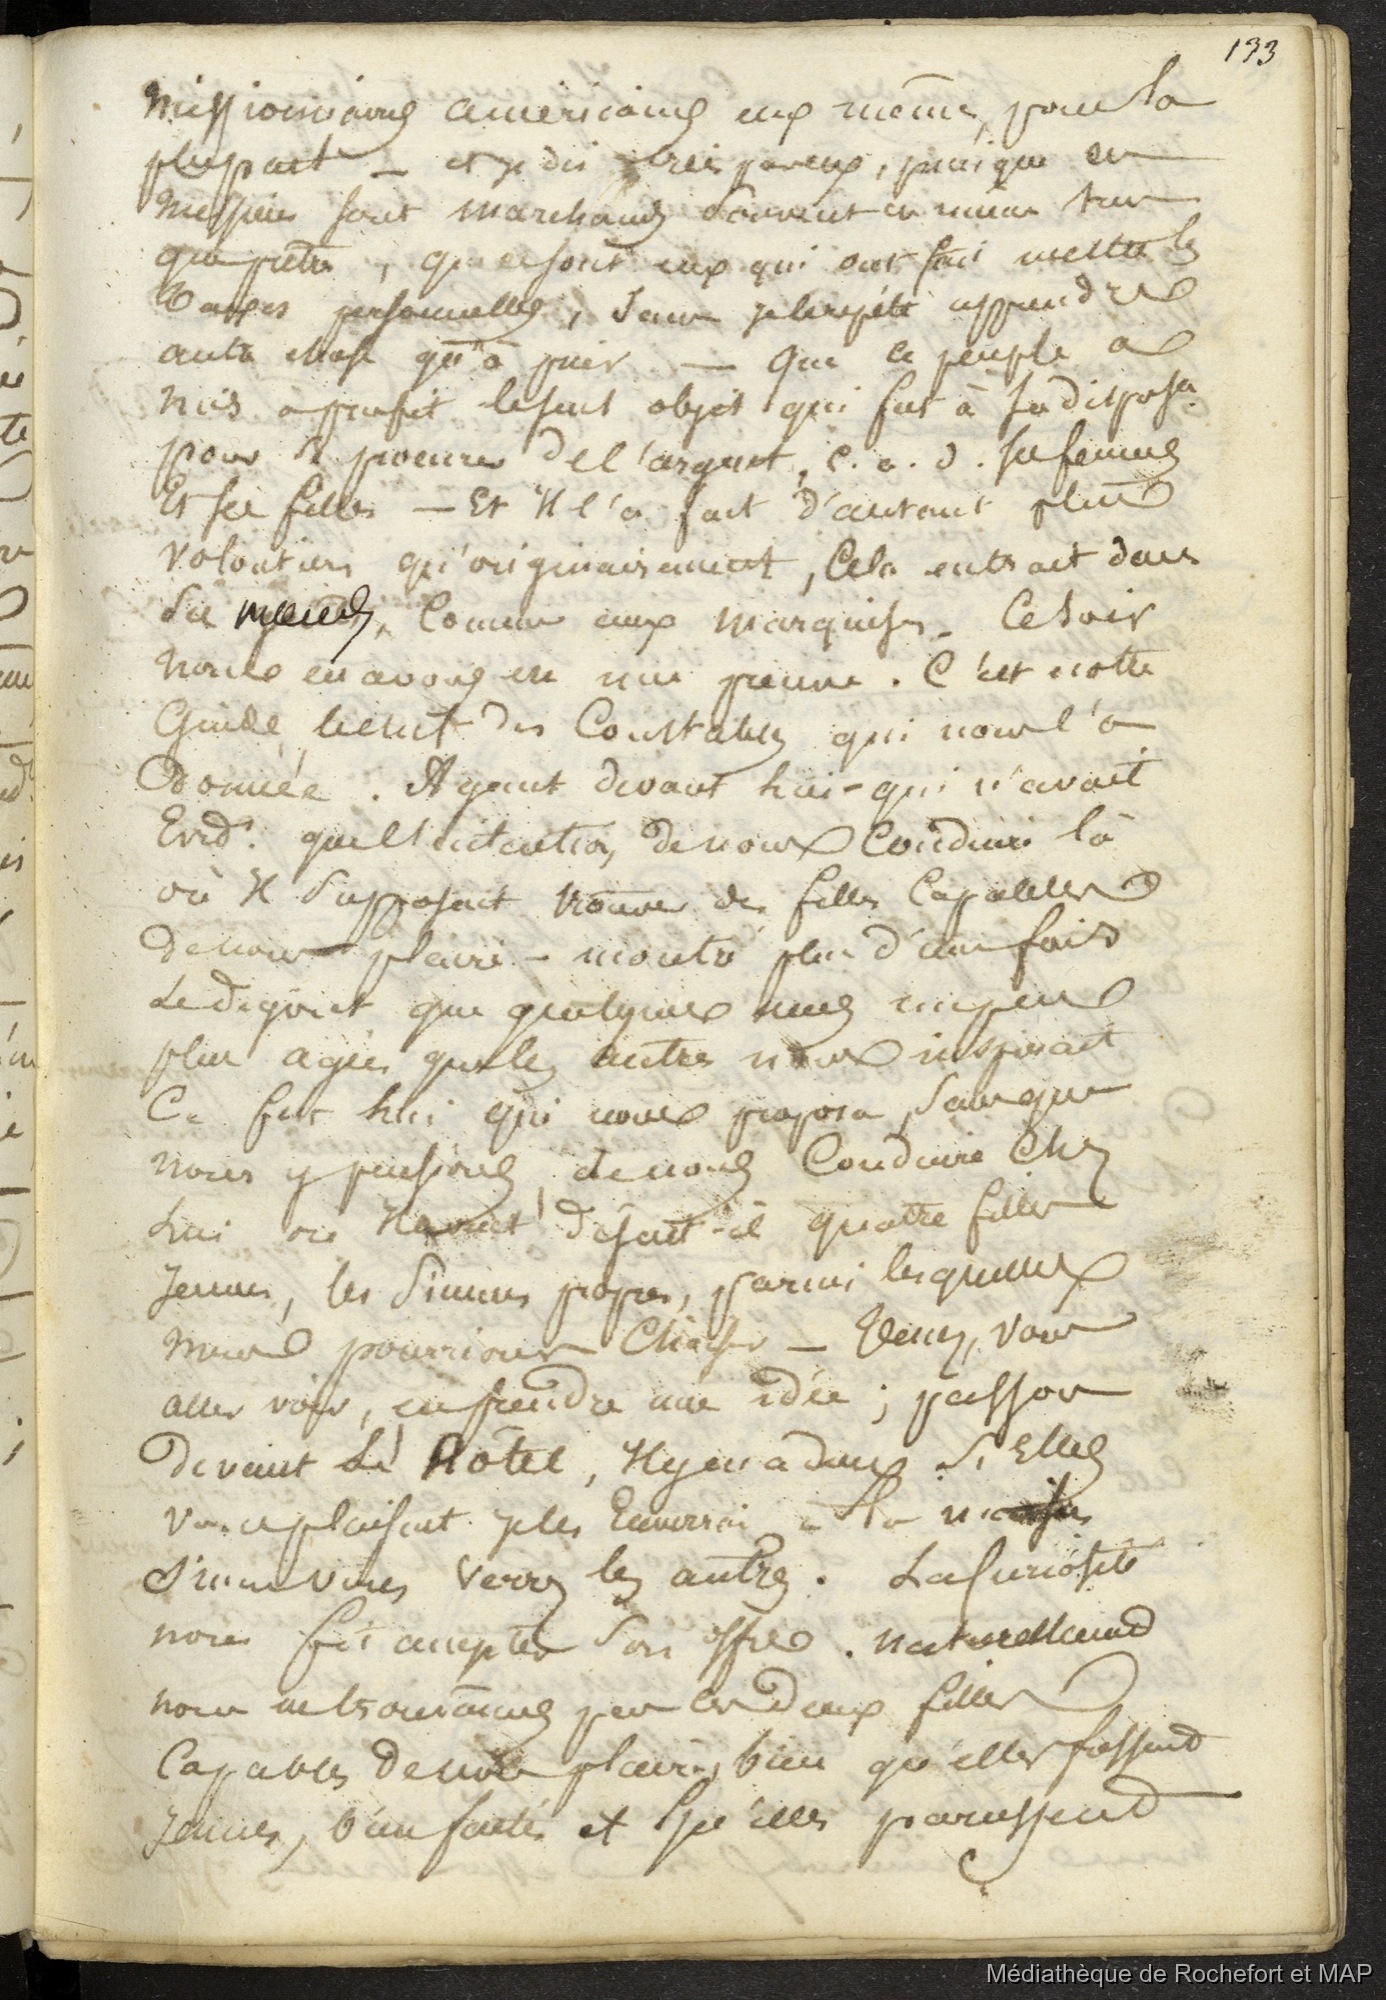 133
missionnaires américains eux mêmes, pour la
plupart — et je dis par eux, puisque ces
messieurs sont marchands souvent en même tems
que prêtre, que ce sont eux qui ont fait mettre les
taxes personnelles, sans je le répète apprendre
autre chose qu'à prier — que ce peuple a
mis à profit le seul objet qui fut à sa disposon
pour se procurer de l'argent, c. a. d. ses femmes
Et ses filles — Et Il l'a fait d'autant plus
volontiers qu'originairement, Cela entrait dans
ses mœurs, Comme aux marquises. Ce soir
nous en avons eu une preuve. C'est notre
Guide, le chef des Constables qui nous l'a
Donnée. Ayant devant lui - qui n'avait
Evidt. que l'intention de nous Conduire là
où Il supposait trouver des filles Capables
de nous plaire - montré plus d'une fois
le dégoût que quelques unes un peu
plus agées que les autres nous inspirait
Ce fut lui qui nous proposa, sans que
nous y pensions, de nous Conduire Chez
Lui où Il avait disait-il quatre filles
jeunes, les siennes propres, parmi lesquelles
nous pourrions Choisir — Venez, vous
allez voir, en prendre une idée ; passons
devant Le hôtel, Il y en a deux. Si Elles
vous plaisent je les Enverrai à la maison
sinon vous verrez les autres. La Curiosité
nous fit accepter son offre. naturellement
nous ne trouvâmes pas ces deux filles
Capables de nous plaire, bien qu'elles fussent
jeunes, bien faites et qu'elles parussent
Médiathèque de Rochefort et MAP